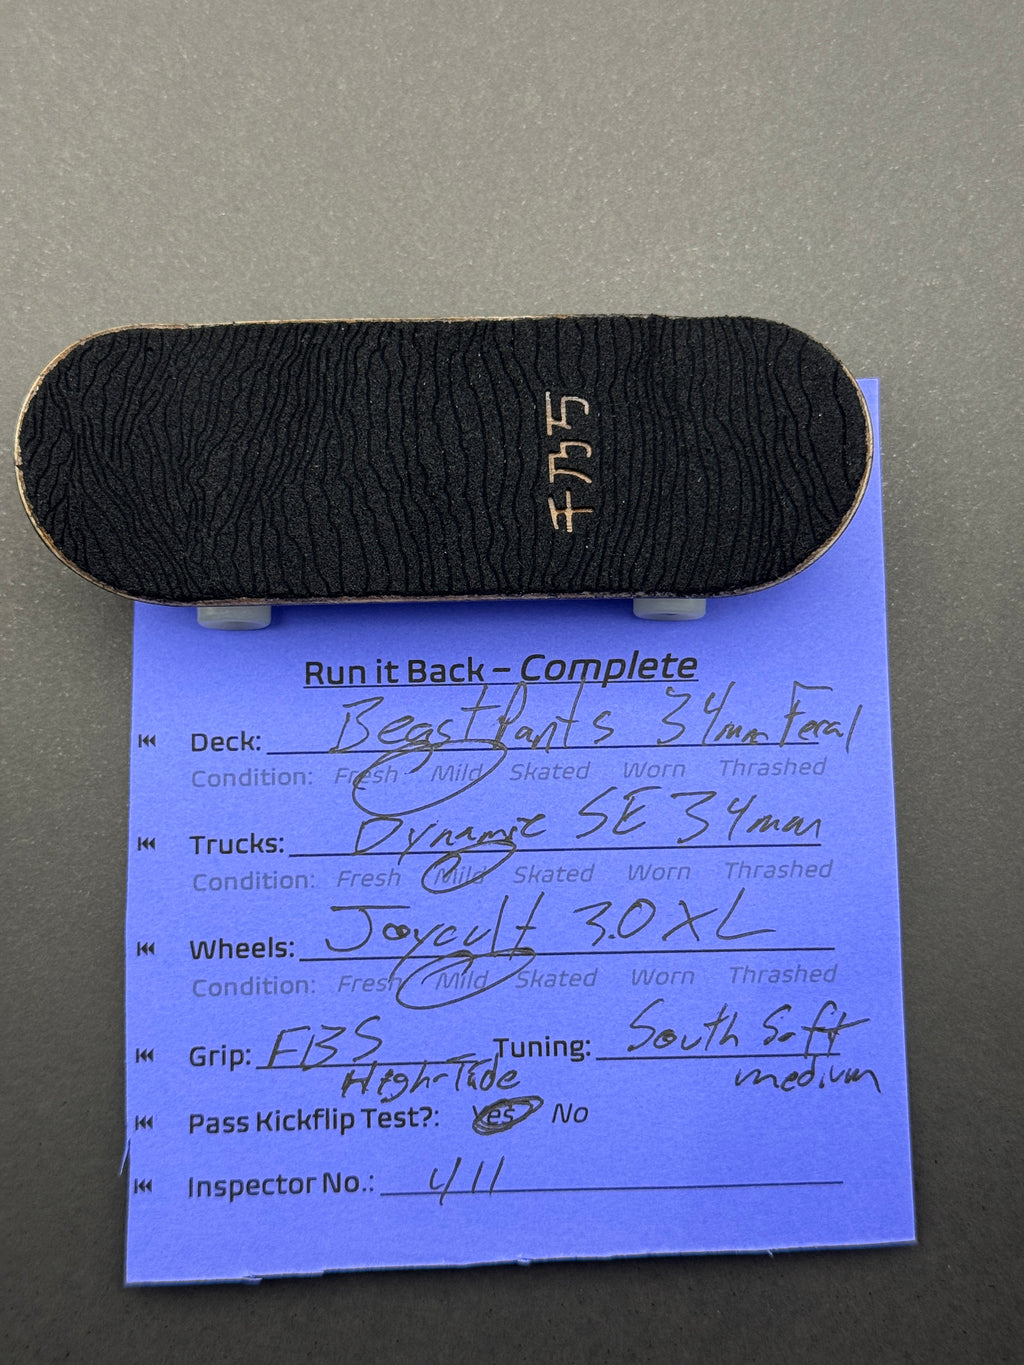 Run it Back – Complete
Deck: BeastPants 34mm Feral
Condition: Fresh Mild Skated Worn Thrashed
Trucks: Dynamic SE 34mm
Condition: Fresh Mild Skated Worn Thrashed
Wheels: Joycult 3.0 XL
Condition: Fresh Mild Skated Worn Thrashed
Grip: FBS Tuning: South Soft
High-Tide medium
Pass Kickflip Test?: Yes No
Inspector No.: 411